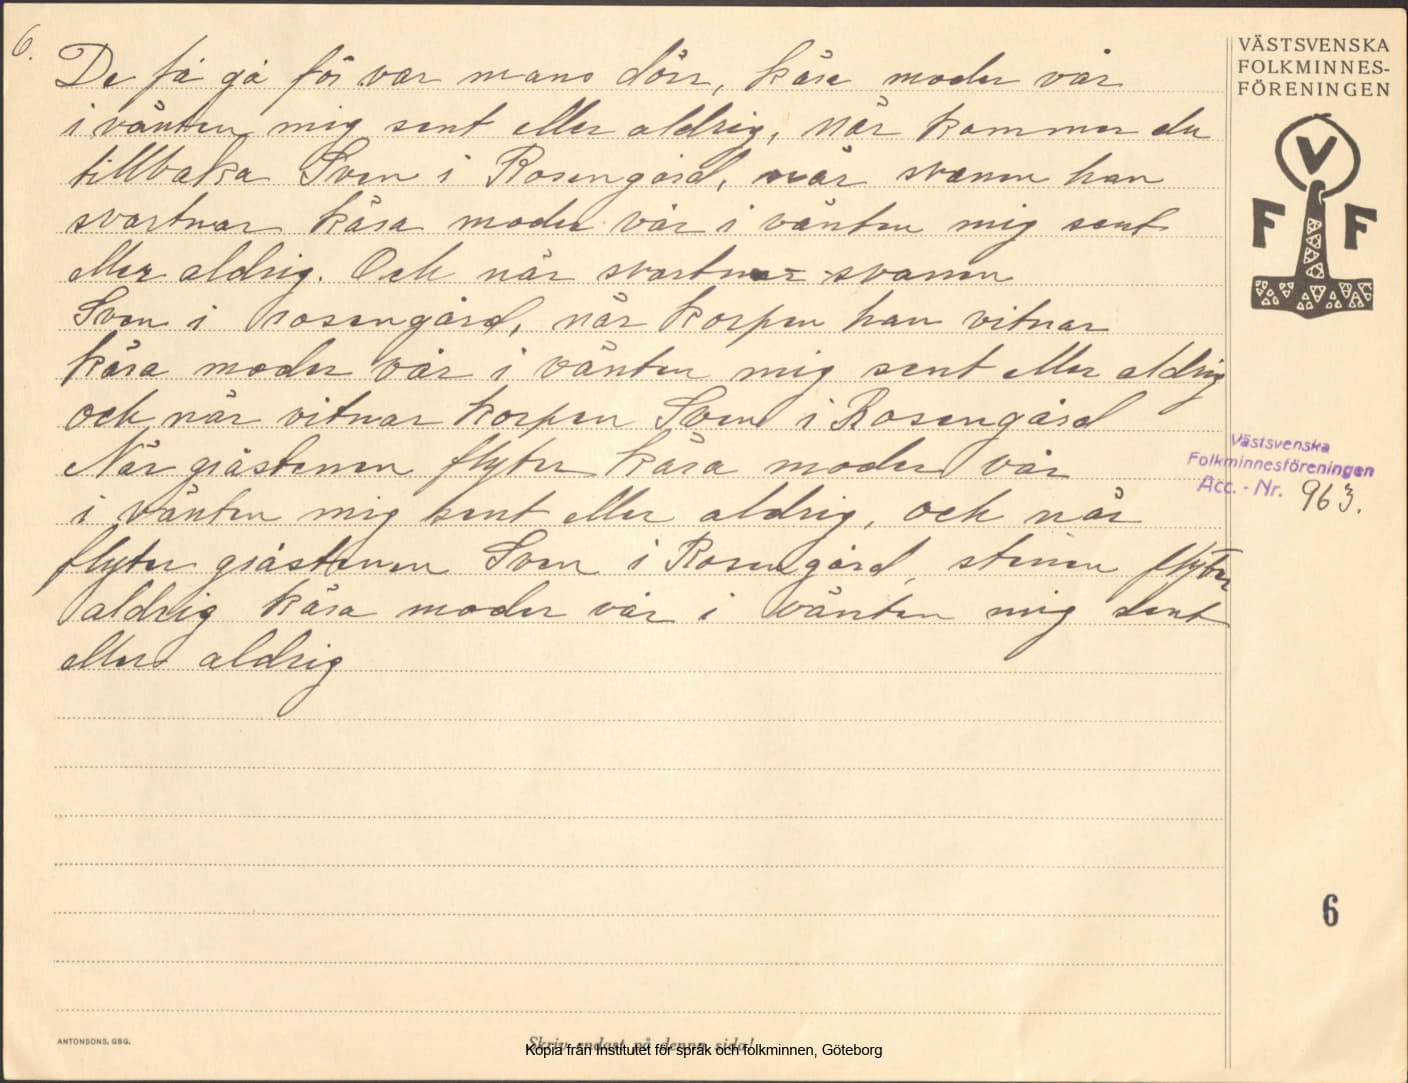 6.
De få gå för var mans dörr, kära moder vår
i vänten mig sent eller aldrig, när kommer du
tillbaka Sven i Rosengård, när svanen han
svartnar kära moder vår i vänten mig sent
eller aldrig. Och när svartnar svanen
Sven i rosengård, när korpen han vitnar
kära moder vår i vänten mig sent eller aldrig
och när vitnar korpen Sven i Rosengård
När gråstenen flyter kära moder vår
i vänten mig sent eller aldrig, och när
flyter gråstenen Sven i Rosengård, stenen flyter
aldrig kära moder vår i vänten mig sent
eller aldrig
VÄSTSVENSKA
FOLKMINNES-
FÖRENINGEN
V
F F
Västsvenska
Folkminnesföreningen
Acc. - Nr. 963.
6
ANTONSONS, GBG.
Skriv endast på denna sida!
Kopia från Institutet för språk och folkminnen, Göteborg